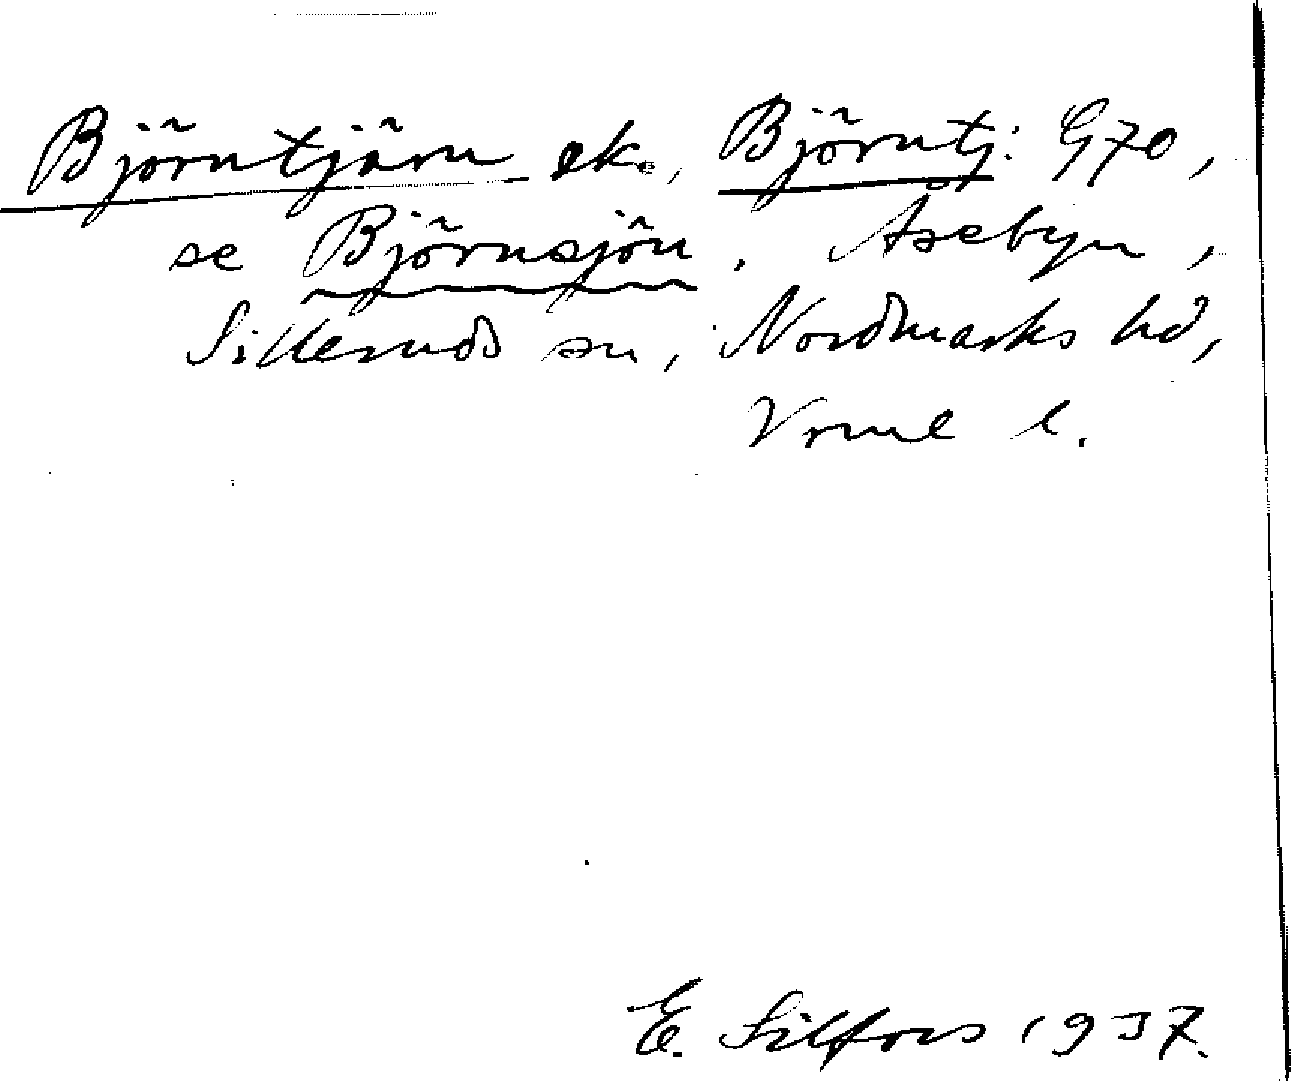 Björntjärn ek., Björntj: G70,
se Björnsjön. Åsebyn,
Silleruds sn, Nordmarks hd,
Vrml l.
E. Silfors 1937.